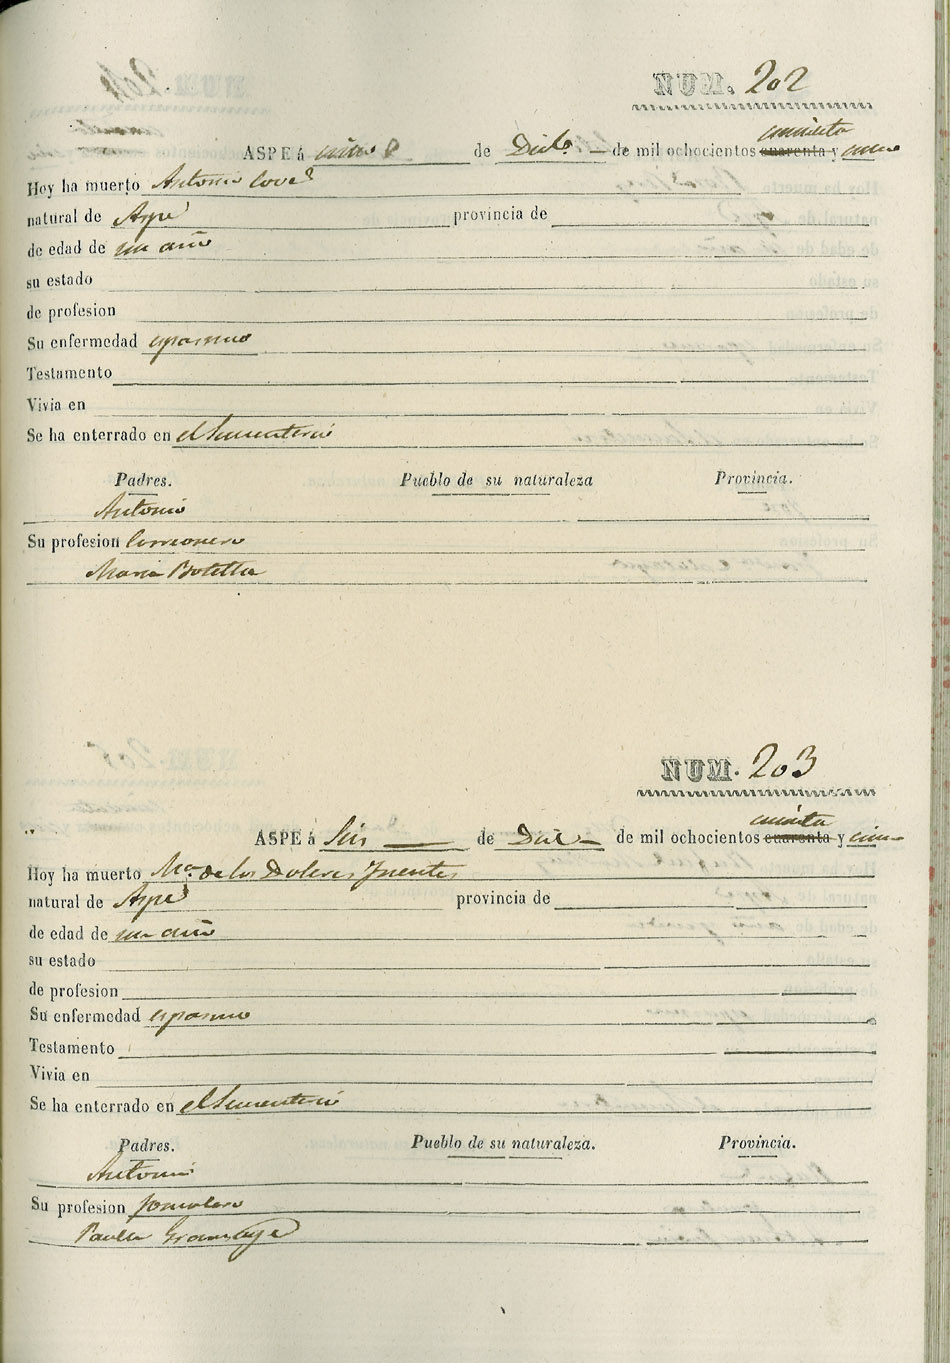 NUM. 202
ASPE á cinco de Dicbe. de mil ochocientos cuarenta cincuenta y cinco
Hoy ha muerto Antonio
natural de Aspe provincia de
de edad de un año
su estado
de profesion
Su enfermedad espasmo
Testamento
Vivia en
Se ha enterrado en el Sementerio
Padres. Pueblo de su naturaleza Provincia.
Antonio
Su profesion
Maria Botella
NUM. 203
ASPE á Seis de Dice de mil ochocientos cuarenta cincuenta y cinco
Hoy ha muerto Ma. de los Dolores Fuentes
natural de Aspe provincia de
de edad de un año
su estado
de profesion
Su enfermedad espasmo
Testamento
Vivia en
Se ha enterrado en el Sementerio
Padres. Pueblo de su naturaleza. Provincia.
Antonio
Su profesion jornalero
Paula Gramaje